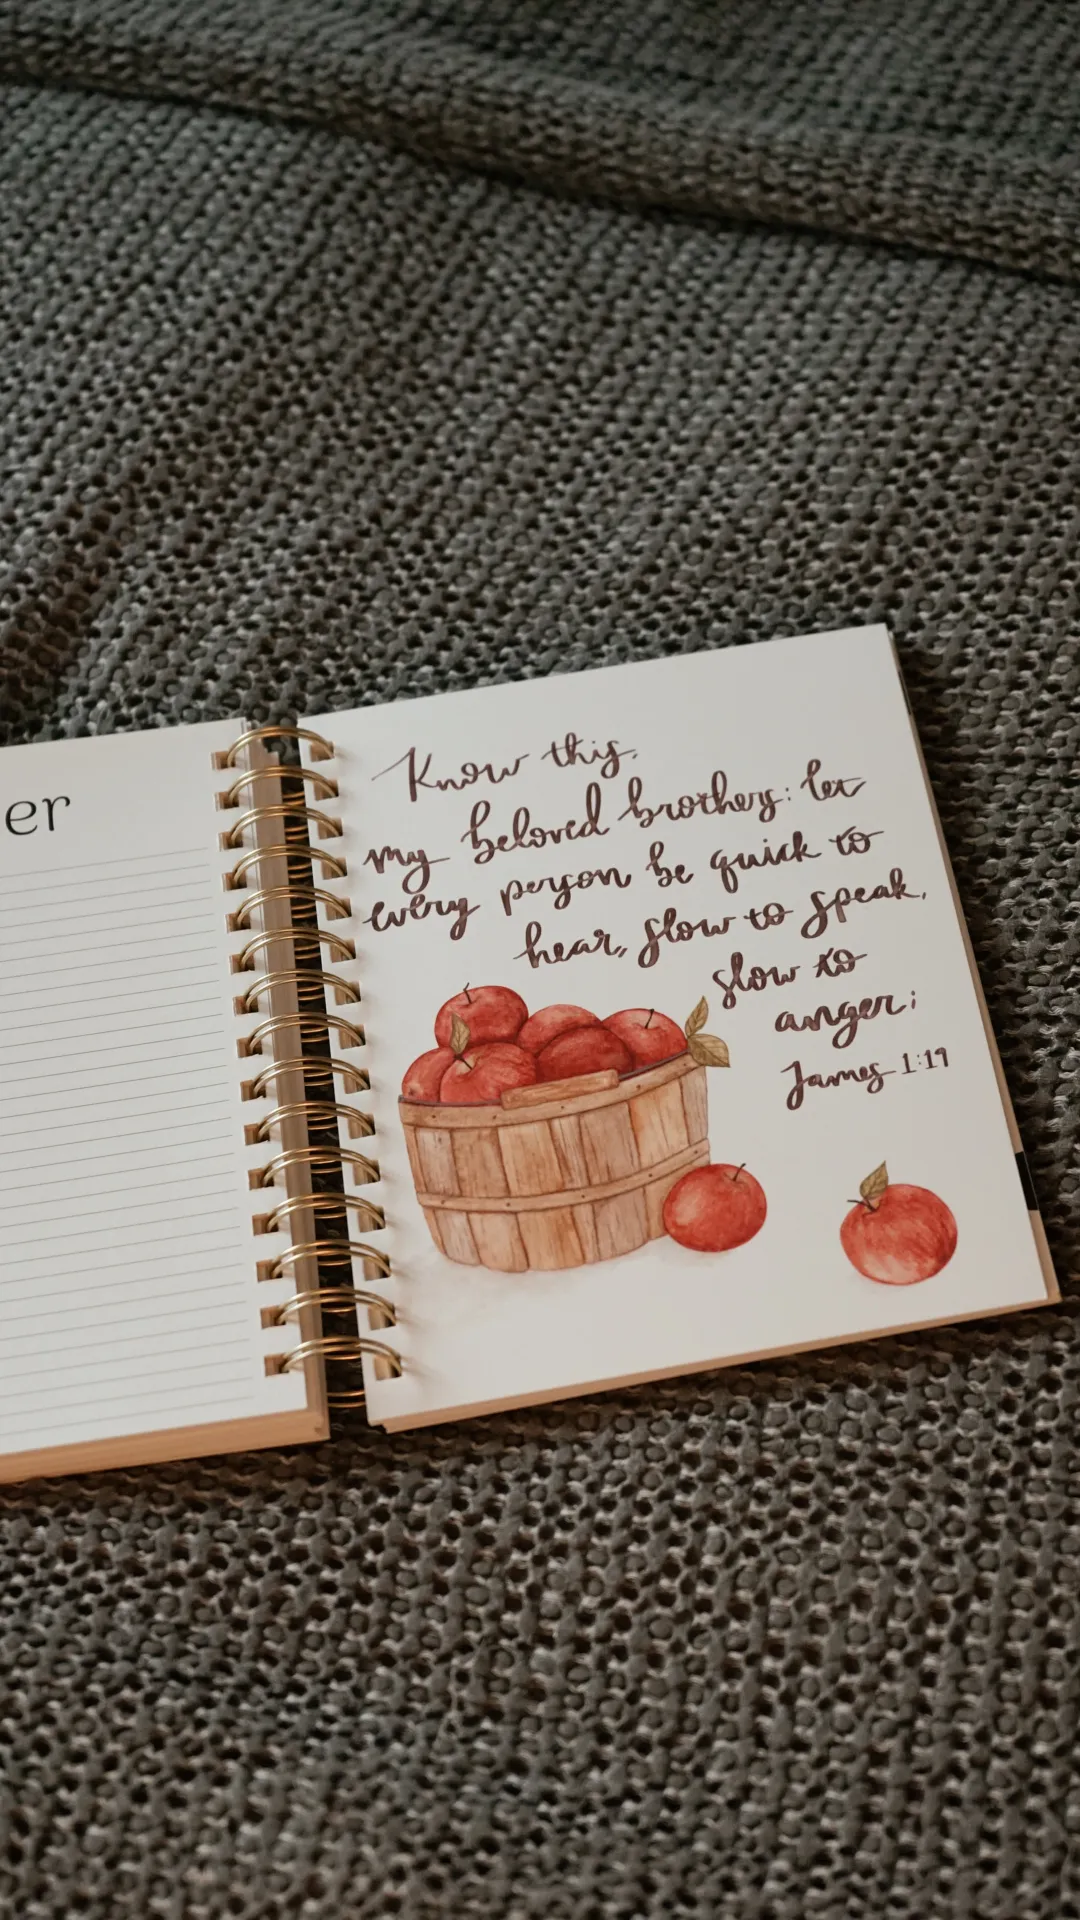 er
Know this,
my beloved brothers: let
every person be quick to
hear, slow to speak,
slow to
anger;
James 1:19